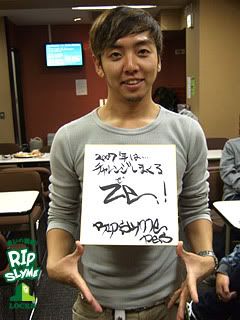 2007年は…
チャレンジしまくる
ぜ〜!
RIP SLYME
PES
RIP
SLYME
LOCKS!